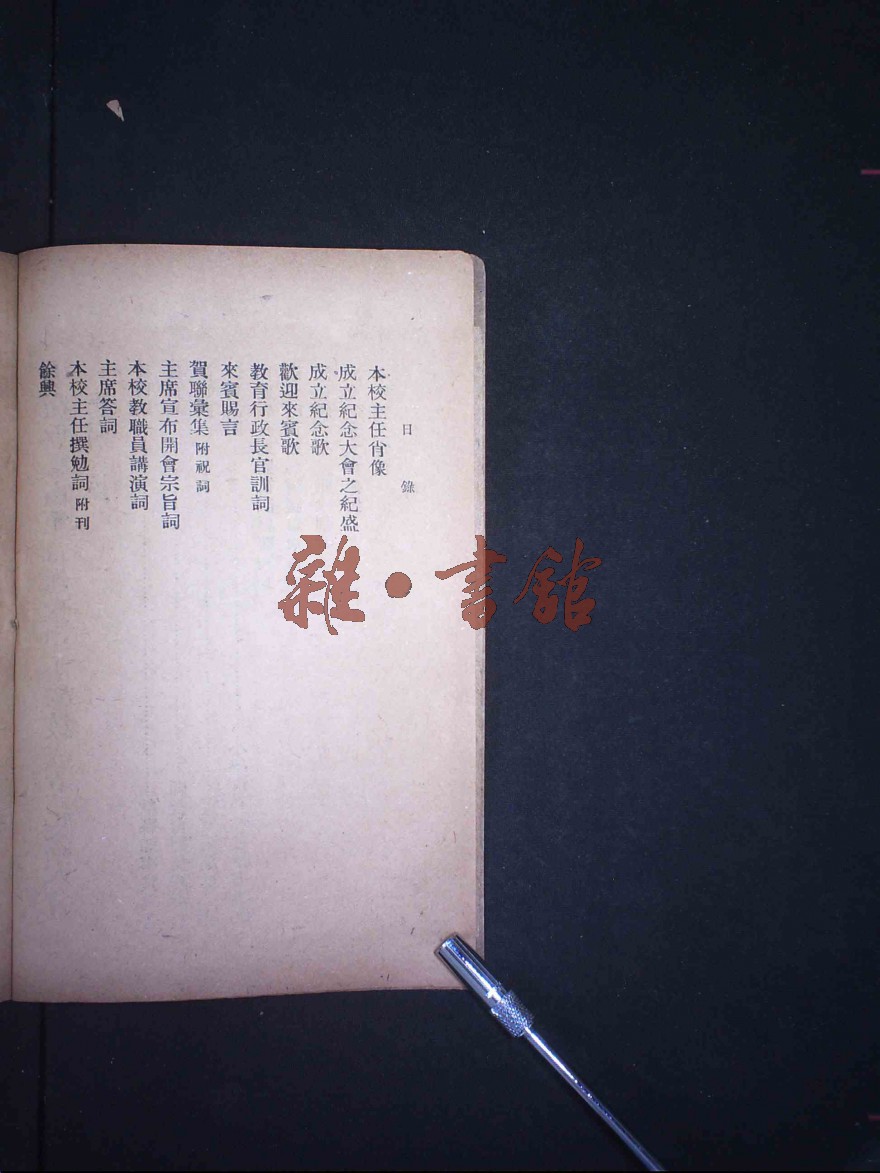 目錄
本校主任肖像
成立紀念大會之紀盛
成立紀念歌
歡迎來賓歌
教育行政長官訓詞
來賓賜言
賀聯彙集 附祝詞
主席宣布開會宗旨詞
本校教職員講演詞
主席答詞
本校主任撰勉詞 附刊
餘興
雜·書館